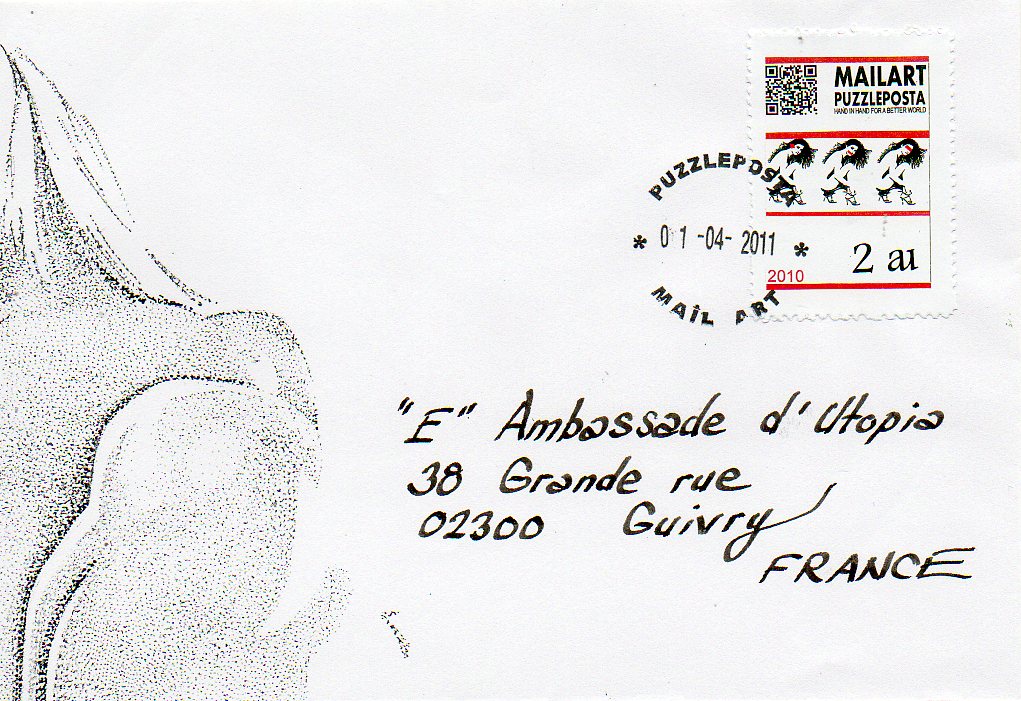 MAILART
PUZZLEPOSTA
HAND IN HAND FOR A BETTER WORLD
PUZZLEPOSTA
* 01-04-2011 *
MAİL ART
2010
2 au
"E" Ambassade d'Utopia
38 Grande rue
02300 Guivry
FRANCE